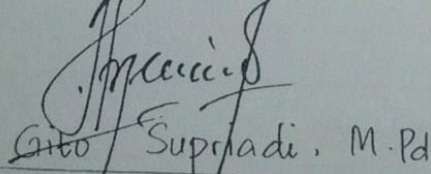 Gito Supriadi. M.Pd